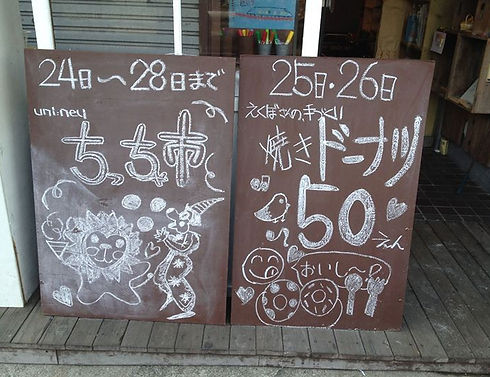 24日〜28日まで
uni:ney
ちっち市
25日・26日
えくぼさんの手づくり
焼きドーナツ
50
えん
おいし〜の